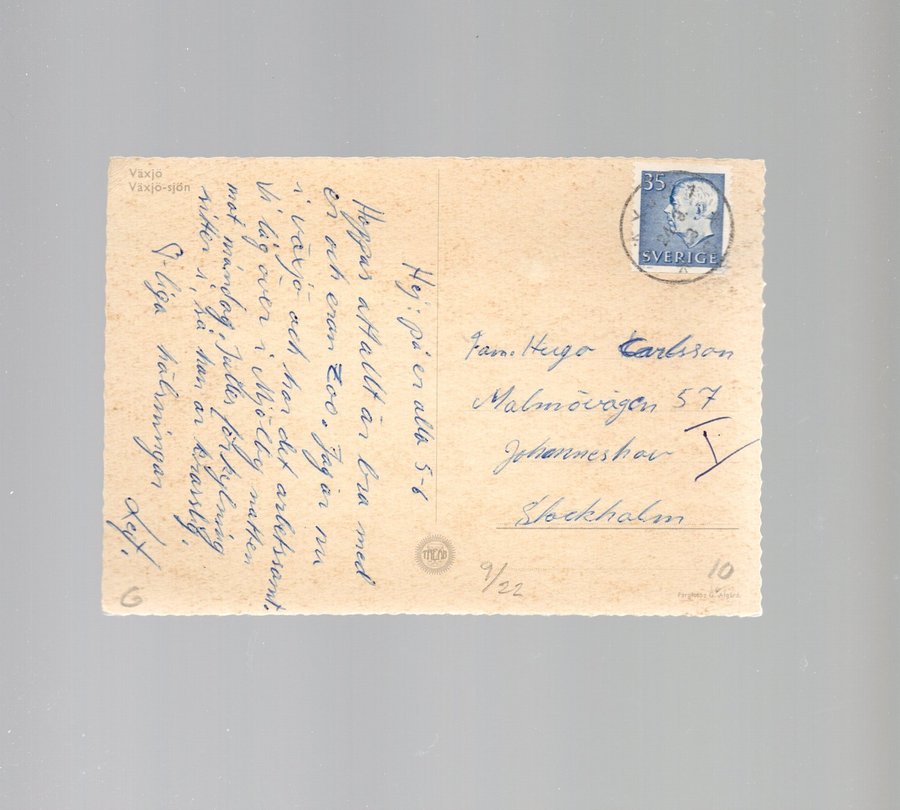 Växjö
Växjö-sjön
Hej! på er alla 5-6
Hoppas att allt är bra med
er och eran Zoo. Jag är nu
i växjö och har det arbetssamt.
Vi låg över i Mjölby natten
mot måndag. Julles förkylning
sitter i, så han är krasslig.
hälsningar
35
SVERIGE
Fam. Hugo Carlsson
Malmövägen 57
Johanneshov
V
Stockholm
9/22
10
G
Färgfoto: